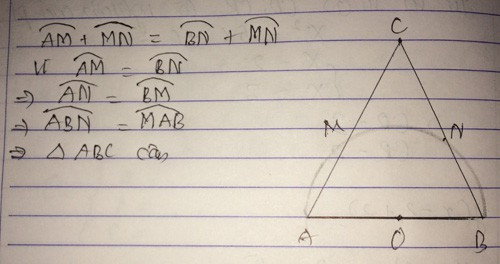 C
AM + MN = BN + MN
Vì AM = BN
=> AN = BM
M N
=> ABN = MAB
=> △ ABC cân
A O B